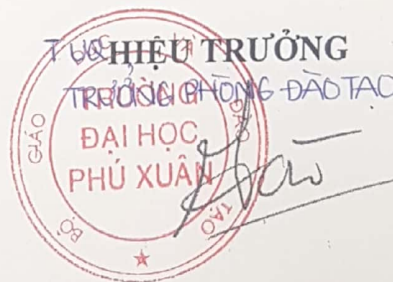 TUQ HIỆU TRƯỞNG
TRƯỞNG PHÒNG ĐÀO TẠO
BỘ GIÁO DỤC VÀ ĐÀO TẠO
TRƯỜNG
ĐẠI HỌC
PHÚ XUÂN